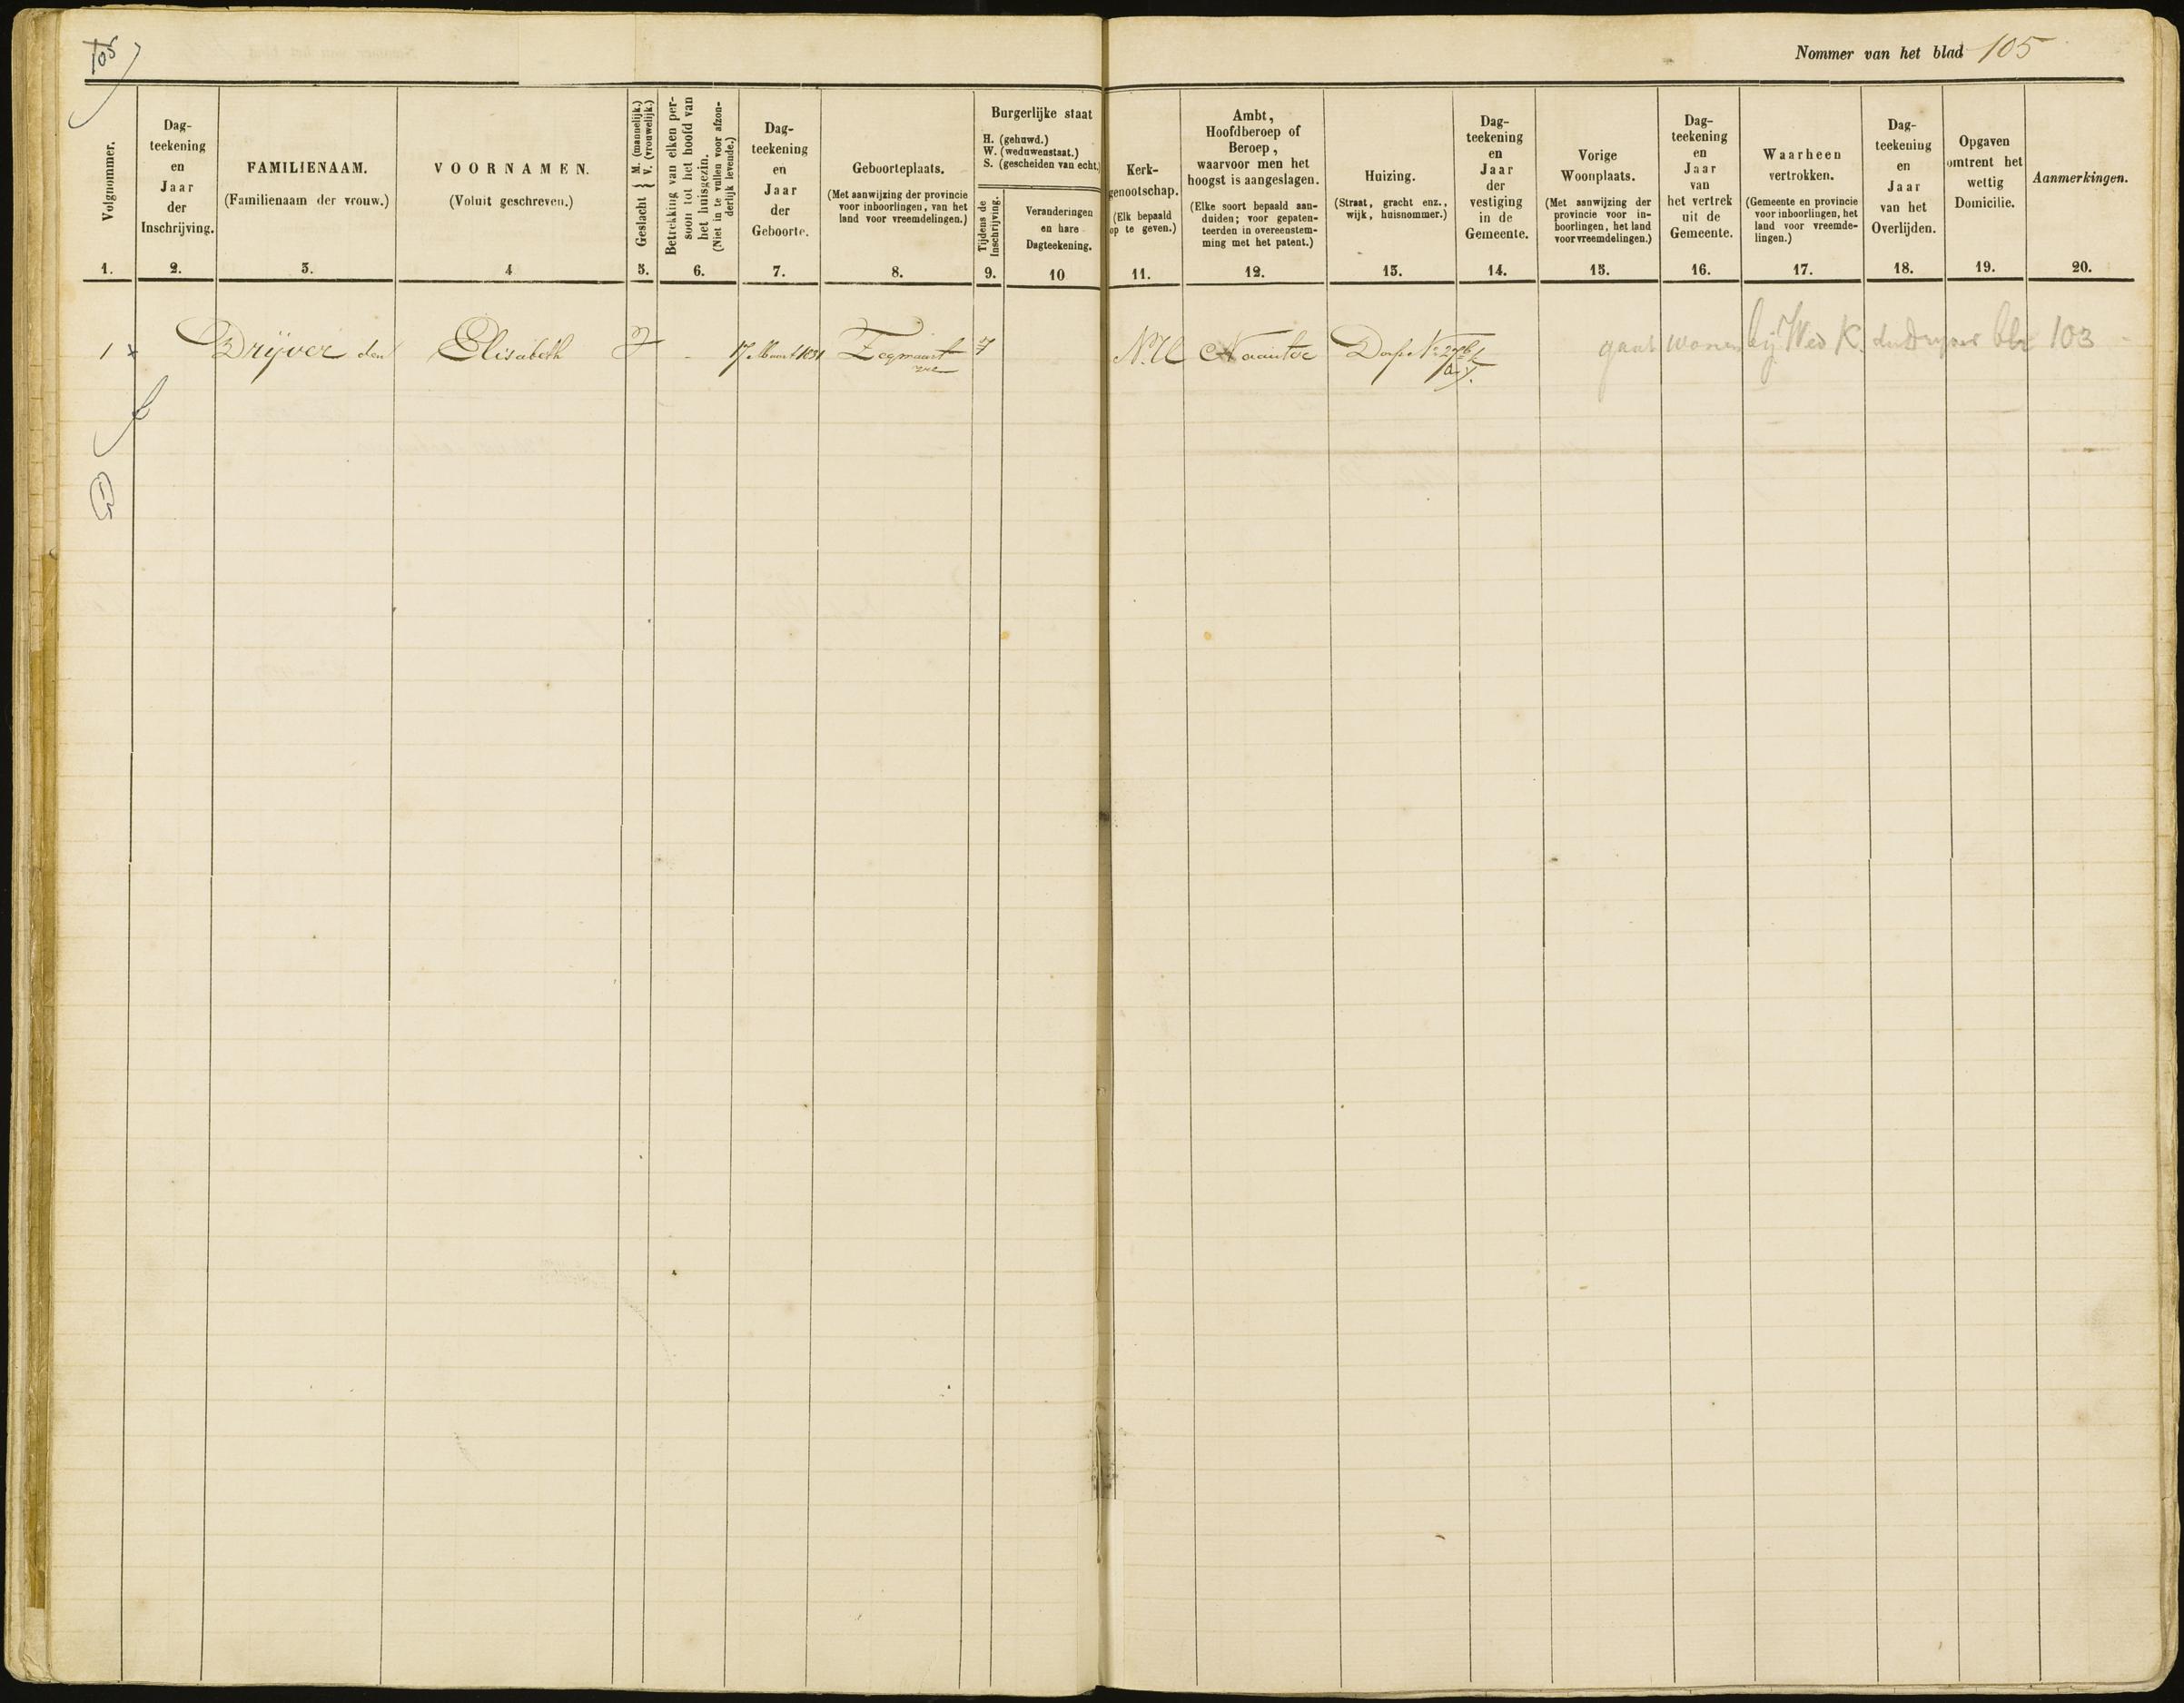 105
Nommer van het blad 105
Volgnommer.
1.
Dag-
teekening
en
Jaar
der
Inschrijving.
2.
FAMILIENAAM.
(Familienaam der vrouw.)
3.
VOORNAMEN.
(Voluit geschreven.)
4
Geslacht { M. (mannelijk.)
V. (vrouwelijk.)
5.
Betrekking van elken per-
soon tot het hoofd van
het huisgezin.
(Niet in te vullen voor afzon-
derlijk levende.)
6.
Dag-
teekening
en
Jaar
der
Geboorte.
7.
Geboorteplaats.
(Met aanwijzing der provincie
voor inboorlingen, van het
land voor vreemdelingen.)
8.
Burgerlijke staat
H. (gehuwd.)
W. (weduwenstaat.)
S. (gescheiden van echt.)
Tijdens de
inschrijving.
9.
Veranderingen
en hare
Dagteekening.
10
Kerk-
genootschap.
(Elk bepaald
op te geven.)
11.
Ambt,
Hoofdberoep of
Beroep,
waarvoor men het
hoogst is aangeslagen.
(Elke soort bepaald aan-
duiden; voor gepaten-
teerden in overeenstem-
ming met het patent.)
12.
Huizing.
(Straat, gracht enz.,
wijk, huisnommer.)
13.
Dag-
teekening
en
Jaar
der
vestiging
in de
Gemeente.
14.
Vorige
Woonplaats.
(Met aanwijzing der
provincie voor in-
boorlingen, het land
voor vreemdelingen.)
15.
Dag-
teekening
en
Jaar
van
het vertrek
uit de
Gemeente.
16.
Waarheen
vertrokken.
(Gemeente en provincie
voor inboorlingen, het
land voor vreemde-
lingen.)
17.
Dag-
teekening
en
Jaar
van het
Overlijden.
18.
Opgaven
omtrent het
wettig
Domicilie.
19.
Aanmerkingen.
20.
1 x Drijver den Elisabeth 17 Maart 1831 N.H Naaister Dorp No gaat wonen bij Wed K. den Dryver blz 103